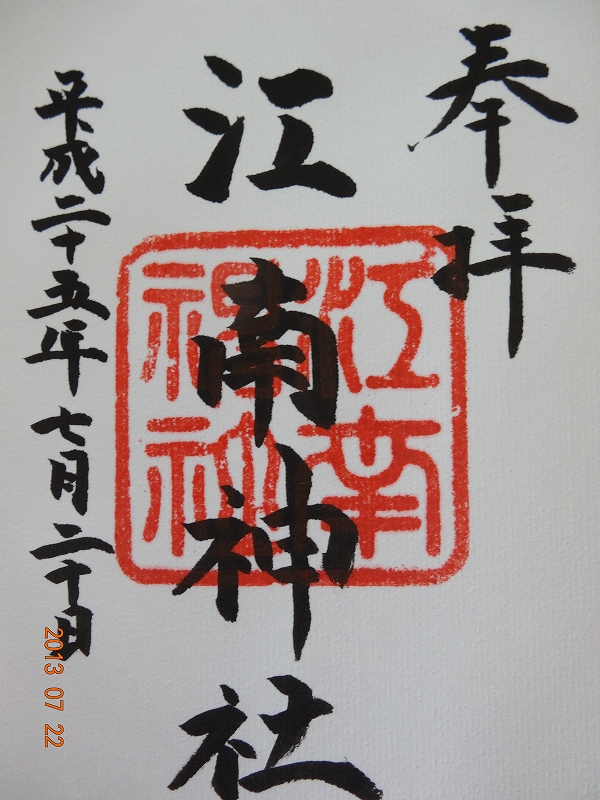 奉拝
江南神社
平成二十五年七月二十日
2013 07 22